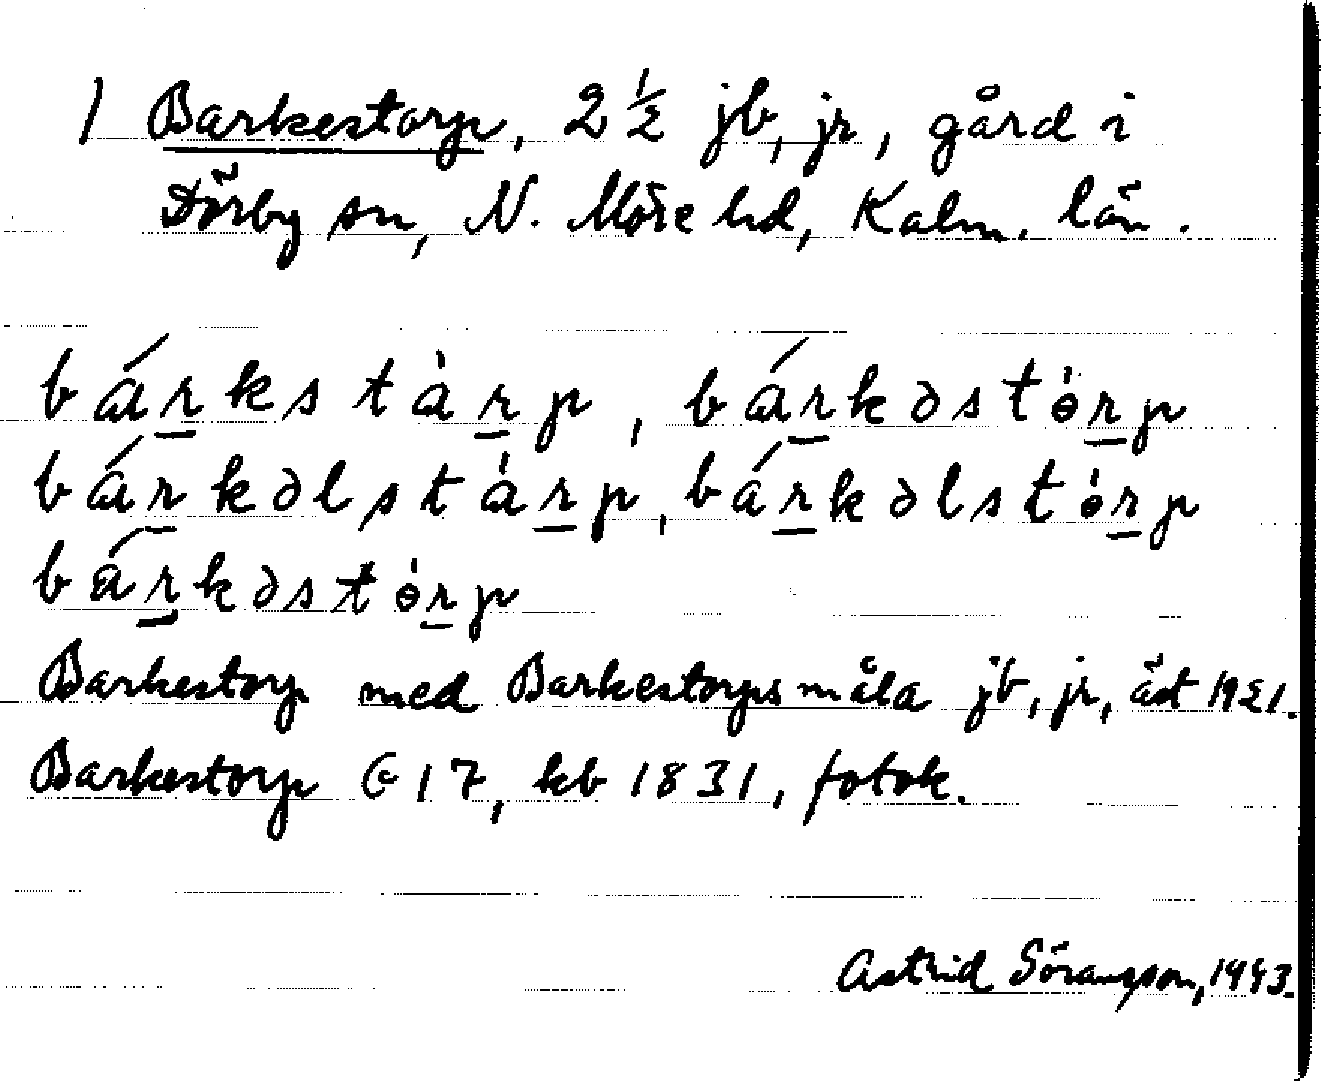 1 Barkestorp, 2 ½ jb, jr, gård i
Dörby sn, N. Möre hd, Kalm. län.
bárkstàrp, bárkəstɵ̀rp
bárkəlstàrp, bárkəlstɵ̀rp
bárkəstɵ̀rp
Barkestorp med Barkestorpsmåla jb, jr, äst 1921.
Barkestorp G 17, kb 1831, fotok.
Astrid Sörangson, 1943.